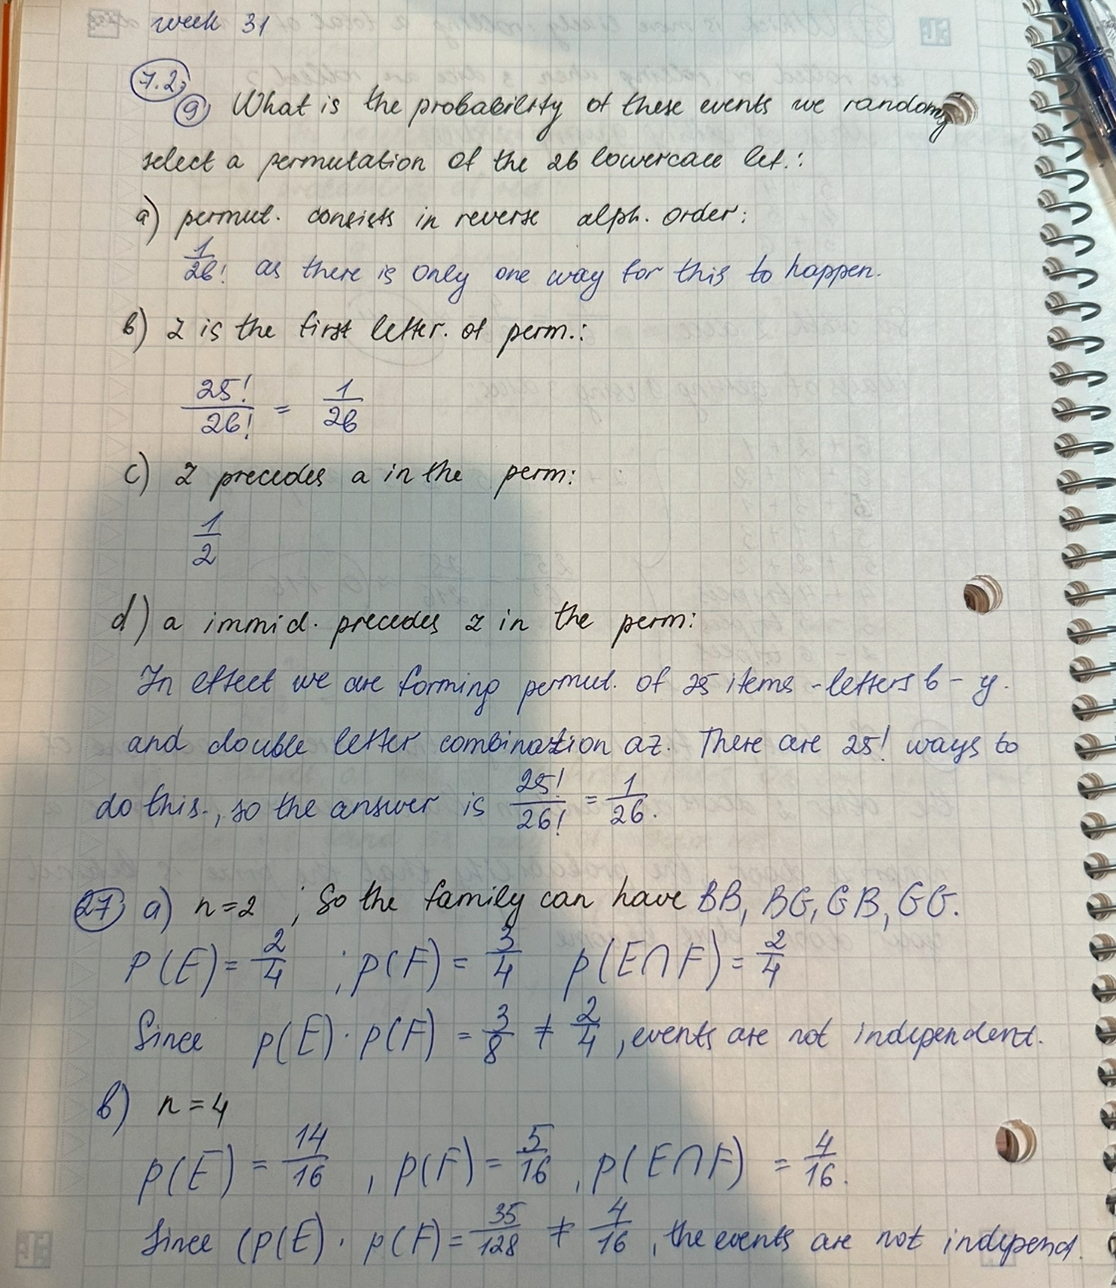 week 31
7.2.
9 What is the probability of these events we randomy
select a permutation of the 26 lowercase let.:
a) permut. consists in reverse alph. order:
1/26! as there is only one way for this to happen.
b) z is the first letter. of perm.:
25!/26! = 1/26
c) z precedes a in the perm:
1/2
d) a immid. precedes z in the perm:
In effect we are forming permut. of 25 items - letters b - y.
and double letter combination az. There are 25! ways to
do this., so the answer is 25!/26! = 1/26.
27 a) n=2 ; So the family can have BB, BG, GB, GG.
p(E) = 2/4 ; p(F) = 3/4 p(E∩F) = 2/4
Since p(E) · p(F) = 3/8 ≠ 2/4, events are not independent.
b) n=4
p(E) = 14/16, p(F) = 5/16, p(E∩F) = 4/16.
Since (p(E) · p(F) = 35/128 ≠ 4/16, the events are not independ.